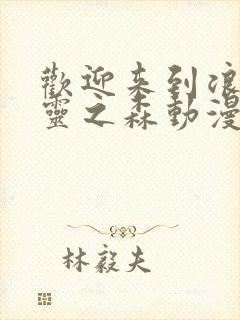 歡迎来到浪
靈之森動漫
林毅夫